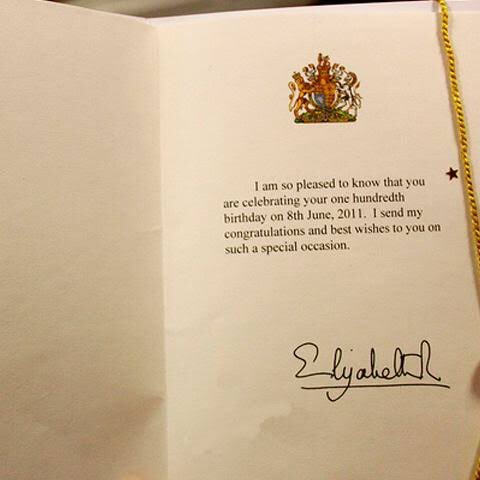 I am so pleased to know that you
are celebrating your one hundredth
birthday on 8th June, 2011. I send my
congratulations and best wishes to you on
such a special occasion.
Elizabeth R